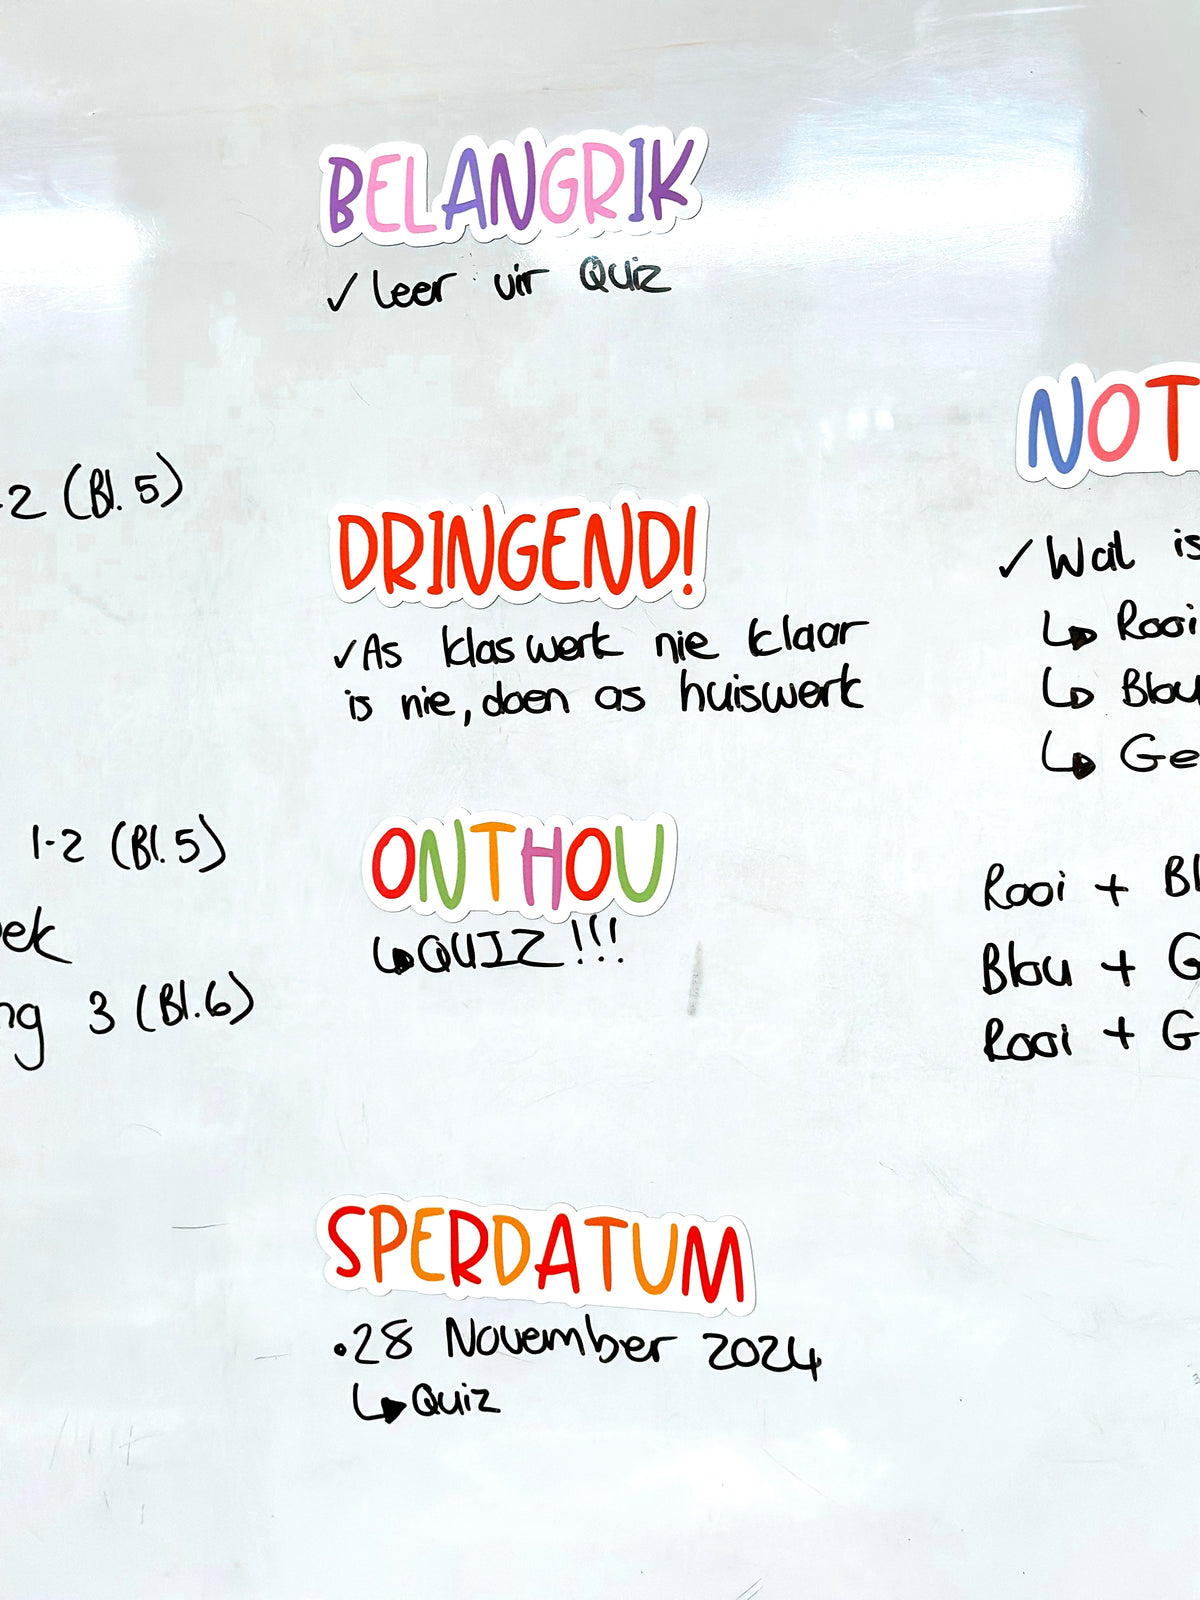 BELANGRIK
✓ Leer vir Quiz
DRINGEND!
✓ As klaswerk nie klaar
is nie, doen as huiswerk
ONTHOU
↳ QUIZ!!!
SPERDATUM
• 28 November 2024
↳ Quiz
-2 (Bl. 5)
1-2 (Bl. 5)
ek
ng 3 (Bl. 6)
NOT
✓ Wat is
↳ Rooi
↳ Blou
↳ Ge
Rooi + Bl
Blou + G
Rooi + G